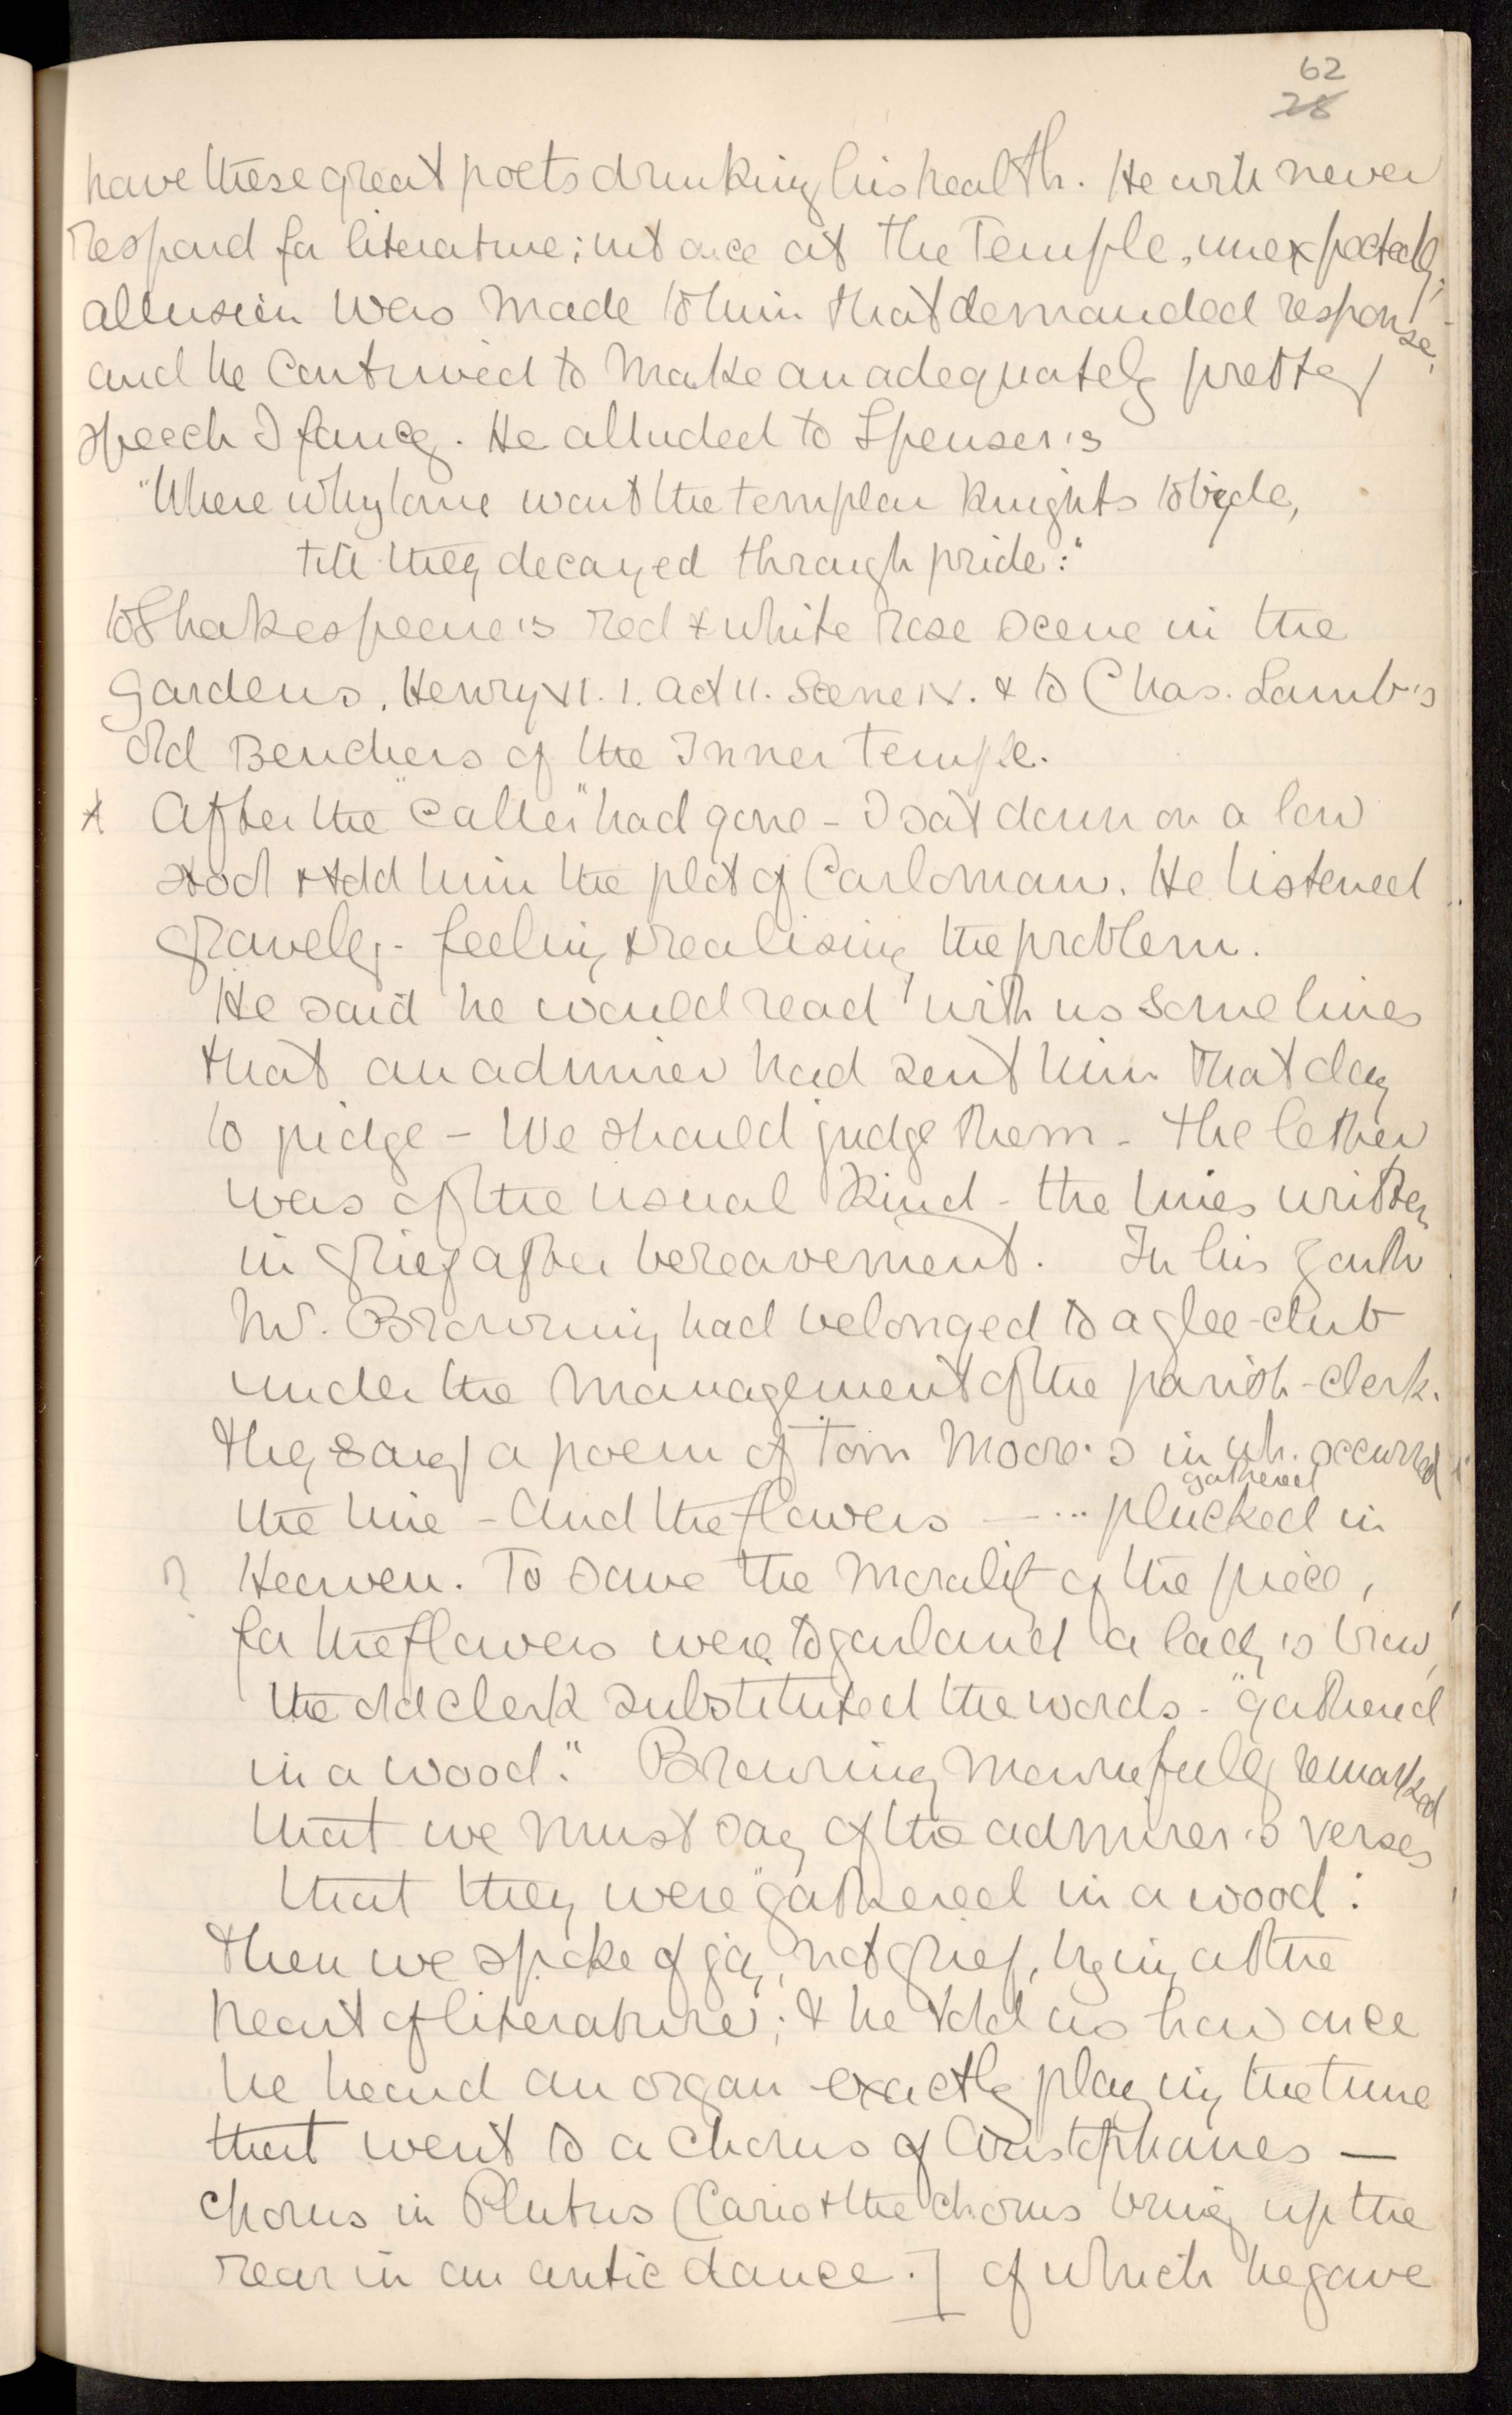 62
28
have these great poets drinking his health. He will never
respond for literature; but once at the Temple, unexpectedly,
allusion was made to him that demanded response,
and he contrived to make an adequately pretty
speech I fancy. He alluded to Spenser's
"Where whylome wont the templar Knights to byde,
till they decayed through pride:"
to Shakespeare's red & white rose scene in the
Gardens, Henry VI. 1. Act 11. Scene IV. & to Chas. Lamb's
Old Benchers of the Inner Temple.
x After the "caller" had gone - I sat down on a low
stool & told him the plot of Carloman. He listened
gravely - feeling & realising the problem.
He said he would read with us some lines
that an admirer had sent him that day
to judge - We should judge them - the letter
was of the usual kind - the lines written
in grief after bereavement. In his youth
Mr. Browning had belonged to a glee-club
under the management of the parish-clerk.
They sang a poem of Tom Moore's in wh. occurred
gathered
the line - And the flowers — ... plucked in
? Heaven. To save the morality of the piece,
for the flowers were to garland a lady's brow,
the old clerk substituted the words - "gathered
in a wood." Browning mournfully remarked
that we must say of the admirer's verses
that they were "gathered in a wood:
Then we spoke of joy, not grief, lying at the
heart of literature; & he told us how once
he heard an organ exactly playing the tune
that went to a chorus of Aristophanes —
chorus in Plutus (Cario & the chorus bring up the
rear in an antic dance.] of which he gave